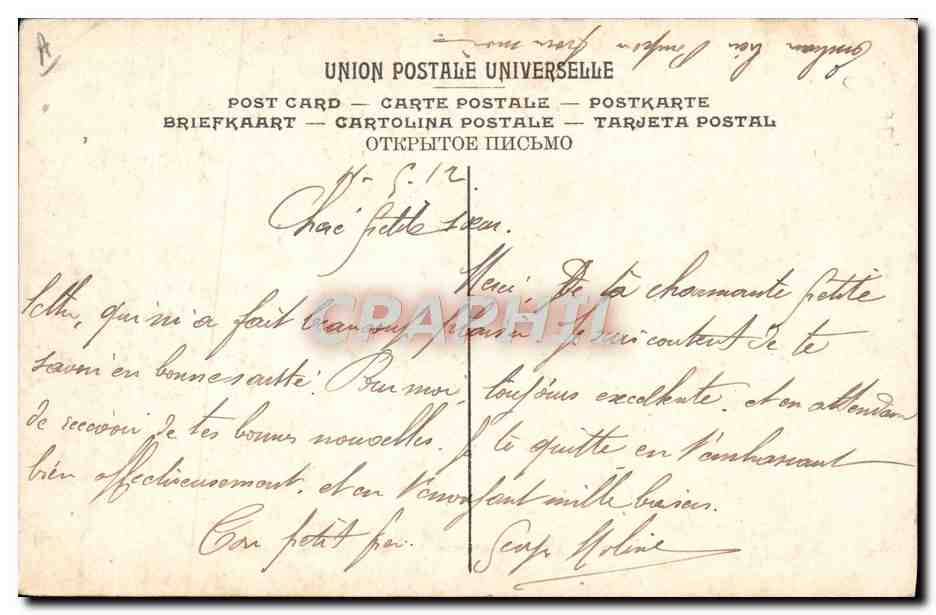 UNION POSTALE UNIVERSELLE
POST CARD — CARTE POSTALE — POSTKARTE
BRIEFKAART — CARTOLINA POSTALE — TARJETA POSTAL
ОТКРЫТОЕ ПИСЬМО
11-5-12.
Chere petite sœur.
Merci, De ta charmante petite
lettre, qui m'a fait beaucoup plaisir Je suis content de te
savoir en bonne santé. Pour moi, toujours excellente. et en attendant
de recevoir de tes bonnes nouvelles. Je te quitte en t'embrassant
bien affectueusement. et en t'envoyant mille baisers.
Ton petit frere. Georges Moline
CPAPHIL
A